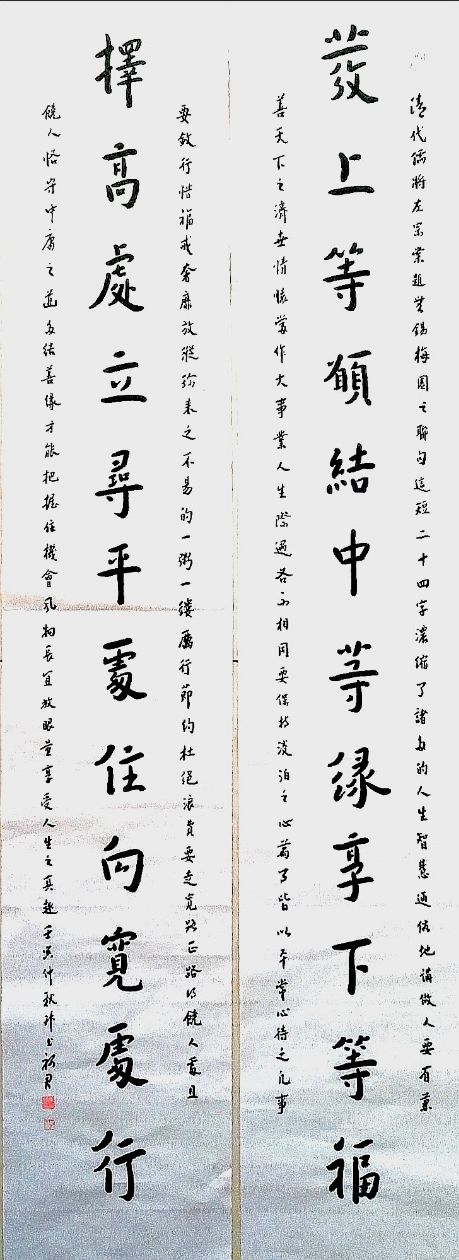 發上等願結中等緣享下等福
清代儒將左宗棠題無錫梅園之聯句這短二十四字濃縮了諸多的人生智慧通俗地講做人要有兼
善天下之濟世情懷當作大事業人生際遇各不相同要保持淡泊之心皆以平常心待之凡事
擇高處立尋平處住向寬處行
要斂行惜福戒奢靡放縱來之不易的一粥一縷厲行節約杜絕浪費要走寬路正路得饒人處且
饒人恪守中庸之道多結善緣才能把握住機會風物長宜放眼量享受人生之真趣壬寅仲秋